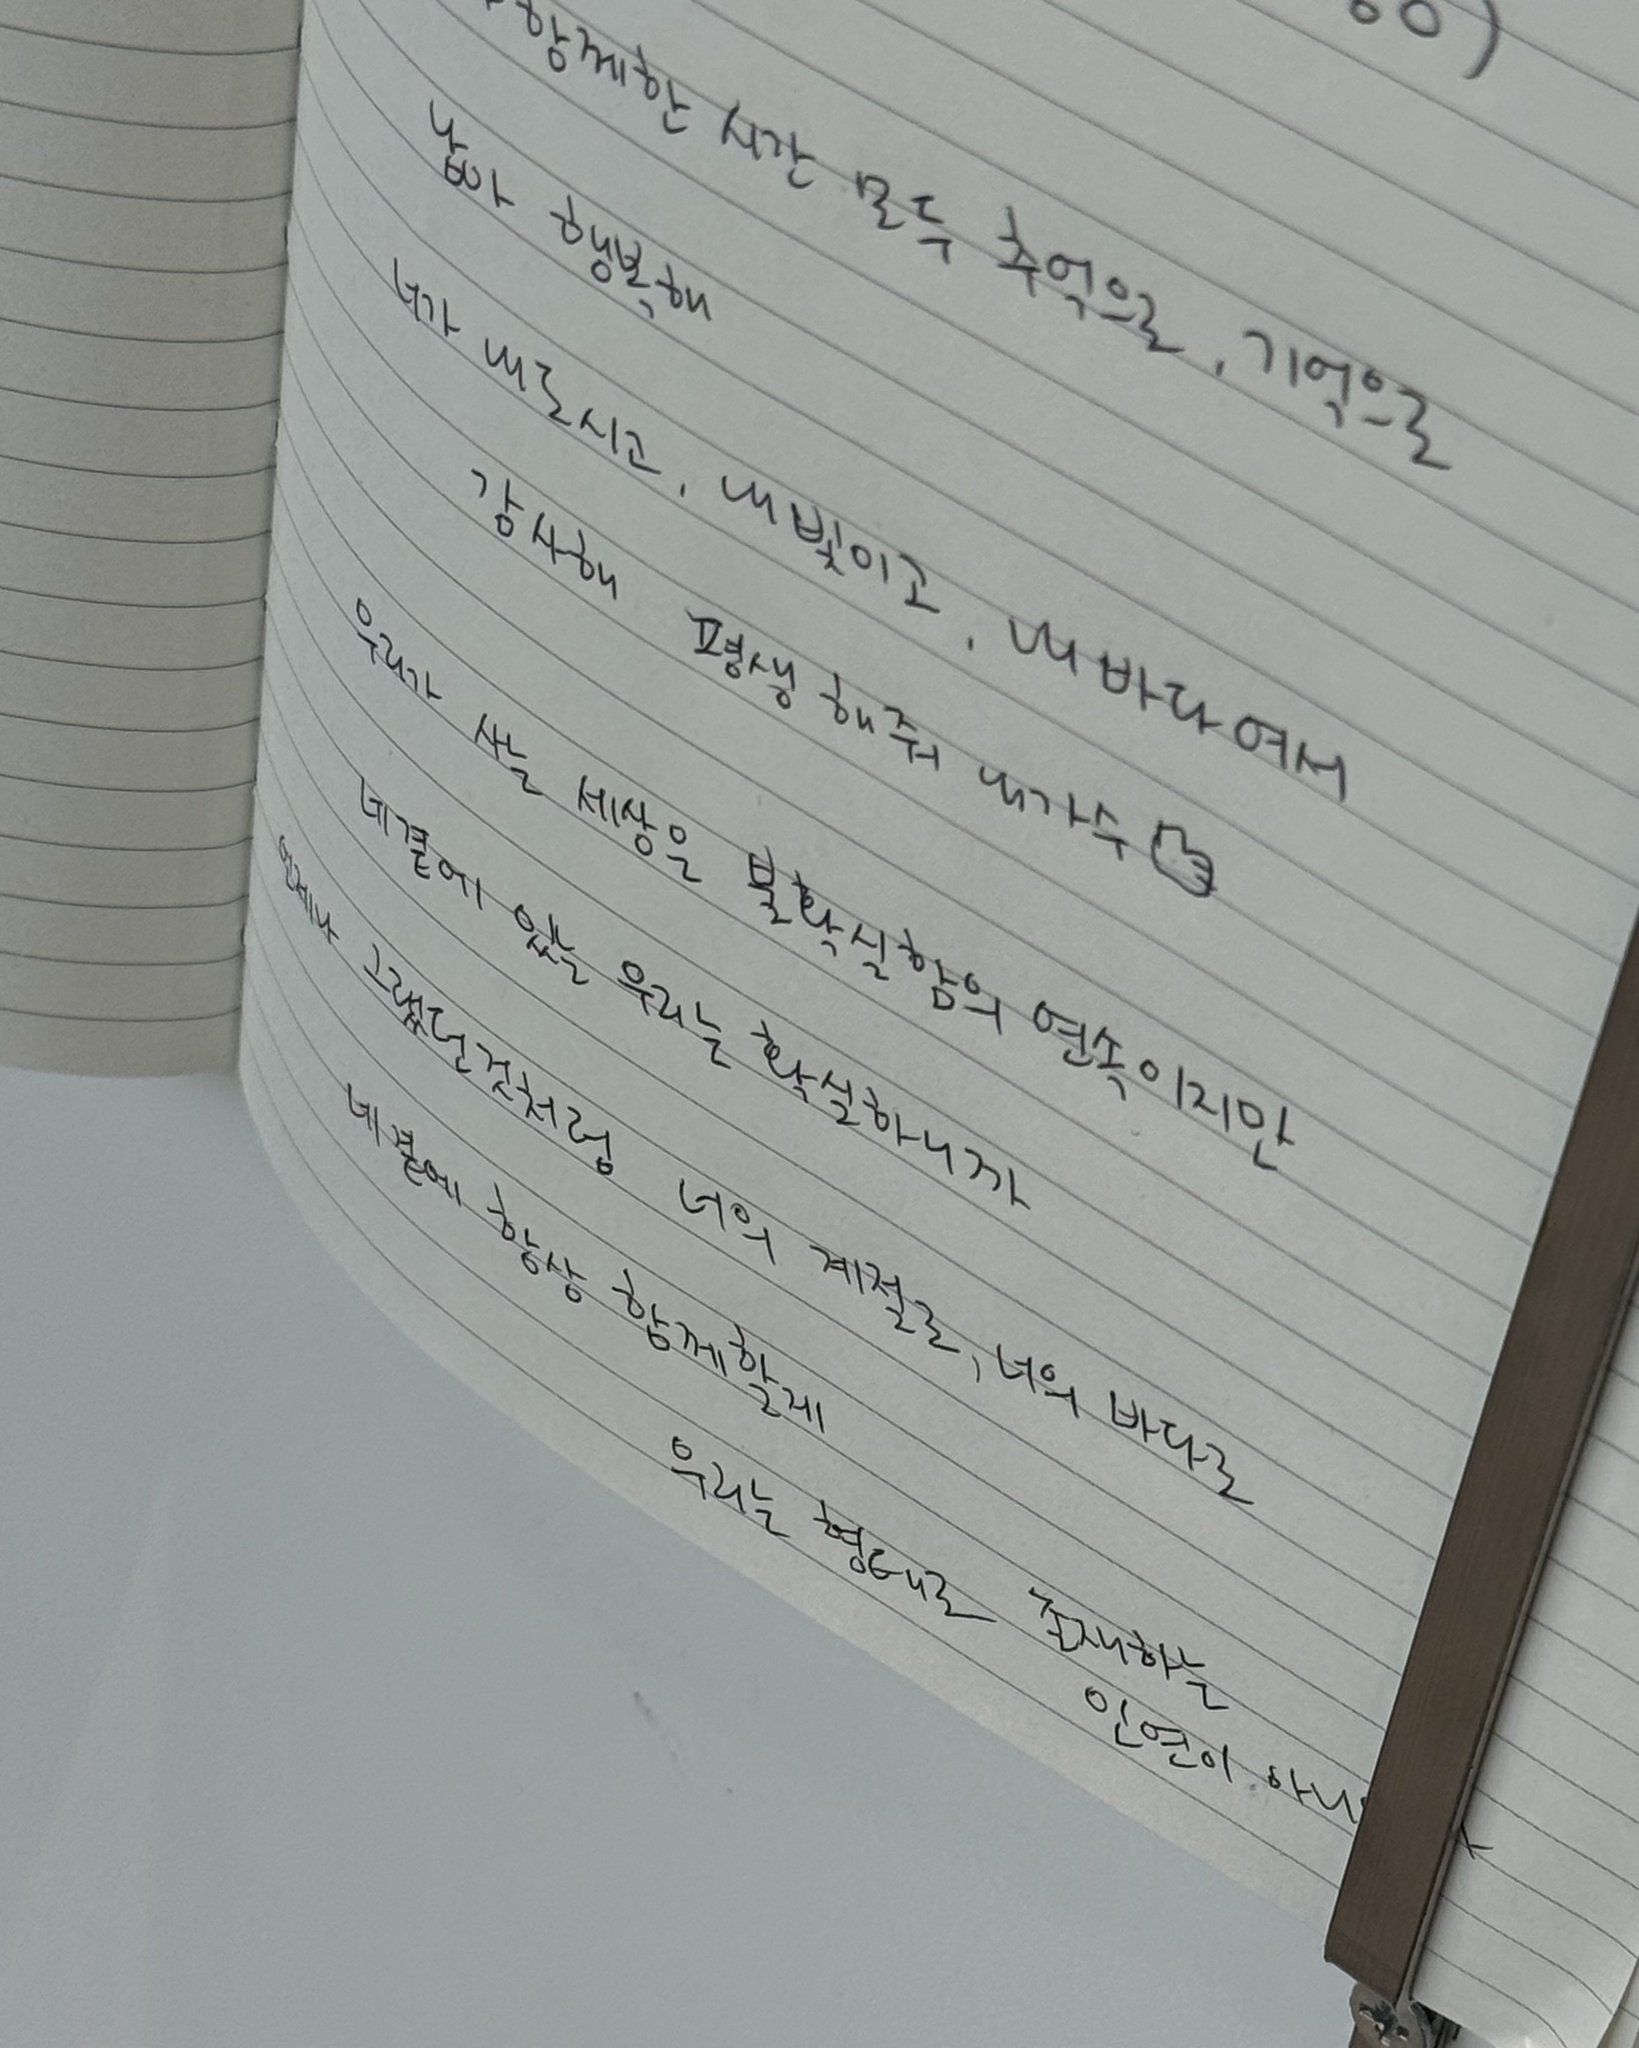 함께한 시간 모두 추억으로, 기억으로
남아 행복해
너가 내로시고, 내 빛이고, 내 바다여서
감사해 평생 해줘 내가수
우리가 사는 세상은 불확실함의 연속이지만
네 곁에 있는 우리는 확실하니까
언제나 그랬던것처럼 너의 계절로, 너의 바다로
네 곁에 항상 함께할게
우리는 형태로 존재하는
인연이 아니